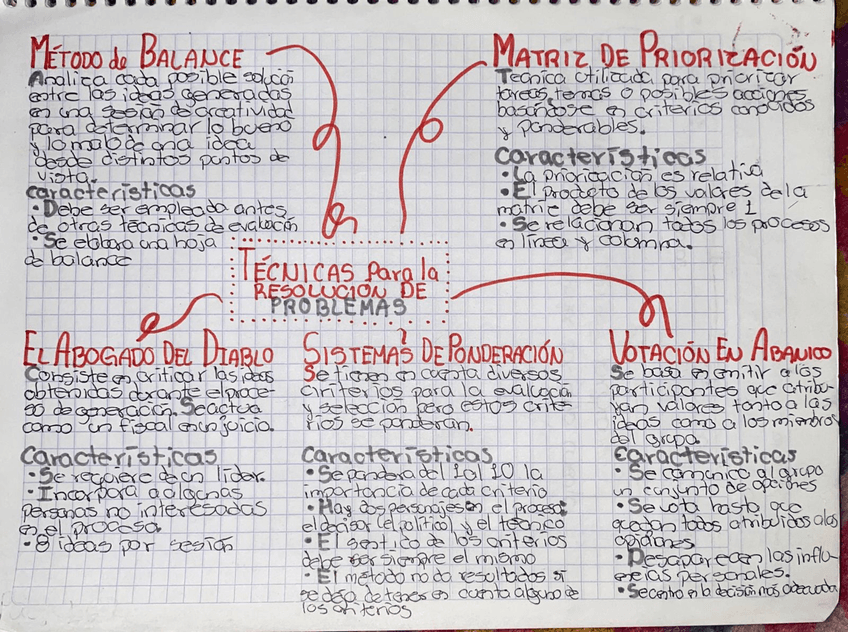 MÉTODO de BALANCE
Analiza cada posible solución
entre las ideas generadas
en una sesión de creatividad
para determinar lo bueno
y lo malo de una idea
desde distintos puntos de
vista.
características
• Debe ser empleada antes
de otras técnicas de evaluación
• Se elabora una hoja
de balance
MATRIZ DE PRIORIZACIÓN
Tecnica utilizada para priorizar
tareas, temas o posibles acciones
basándose en criterios conocidos
y ponderables.
Características
• La priorización es relativa
• El producto de los valores de la
matriz debe ser siempre 1
• Se relacionan todos los procesos
en línea y columna.
TÉCNICAS para la
RESOLUCIÓN DE
PROBLEMAS
EL ABOGADO DEL DIABLO
Consiste en criticar las ideas
obtenidas durante el proce-
so de generación. Se actua
como un fiscal en un juicio.
Características
• Se requiere de un líder.
• Incorpora a algunas
personas no interesadas
en el proceso
• 8 ideas por sesión
SISTEMAS DE PONDERACIÓN
Se tienen en cuenta diversos
criterios para la evaluación
y selección pero estos crite-
rios se ponderan.
Características
• Se pondera del 1 al 10 la
importancia de cada criterio
• Hay dos personajes en el proceso;
el decisor (el político) y el técnico
• El sentido de los criterios
debe ser siempre el mismo
• El método no da resultados si
se deja de tener en cuenta alguno de
los criterios
VOTACIÓN EN ABANICO
Se basa en emitir a las
participantes que atribu-
yan valores tanto a las
ideas como a los miembros
del grupo.
Características
• Se comunica al grupo
un conjunto de opciones
• Se vota hasta que
quedan todos atribuidos a las
opiniones
• Desaparecen las influ-
encias personales.
• Se centra en la decisión más adecuada